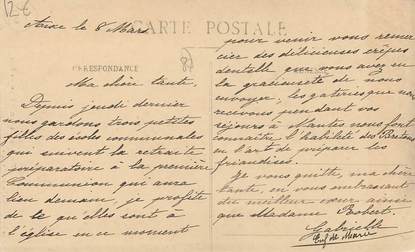 12€
CARTE POSTALE
CORRESPONDANCE
le 8 Mars
Ma chère tante,
Depuis jeudi dernier
nous gardons trois petites
filles des écoles communales
qui suivent la retraite
préparatoire à la première
Communion qui aura
lieu demain, je profite
de ce qu'elles sont à
l'église en ce moment
pour venir vous remer
cier des délicieuses crêpes
dentelle que vous avez eu
la gracieuseté de nous
envoyer, les gateries que nous
recevons pendant vos
séjours à Nantes nous font
connaître l'habileté des Bretons
en l'art de préparer les
friandises.
Je vous quitte, ma chère
tante, en vous embrassant
du meilleur cœur ainsi
que Madame Robert.
Gabrielle
Enf de Marie